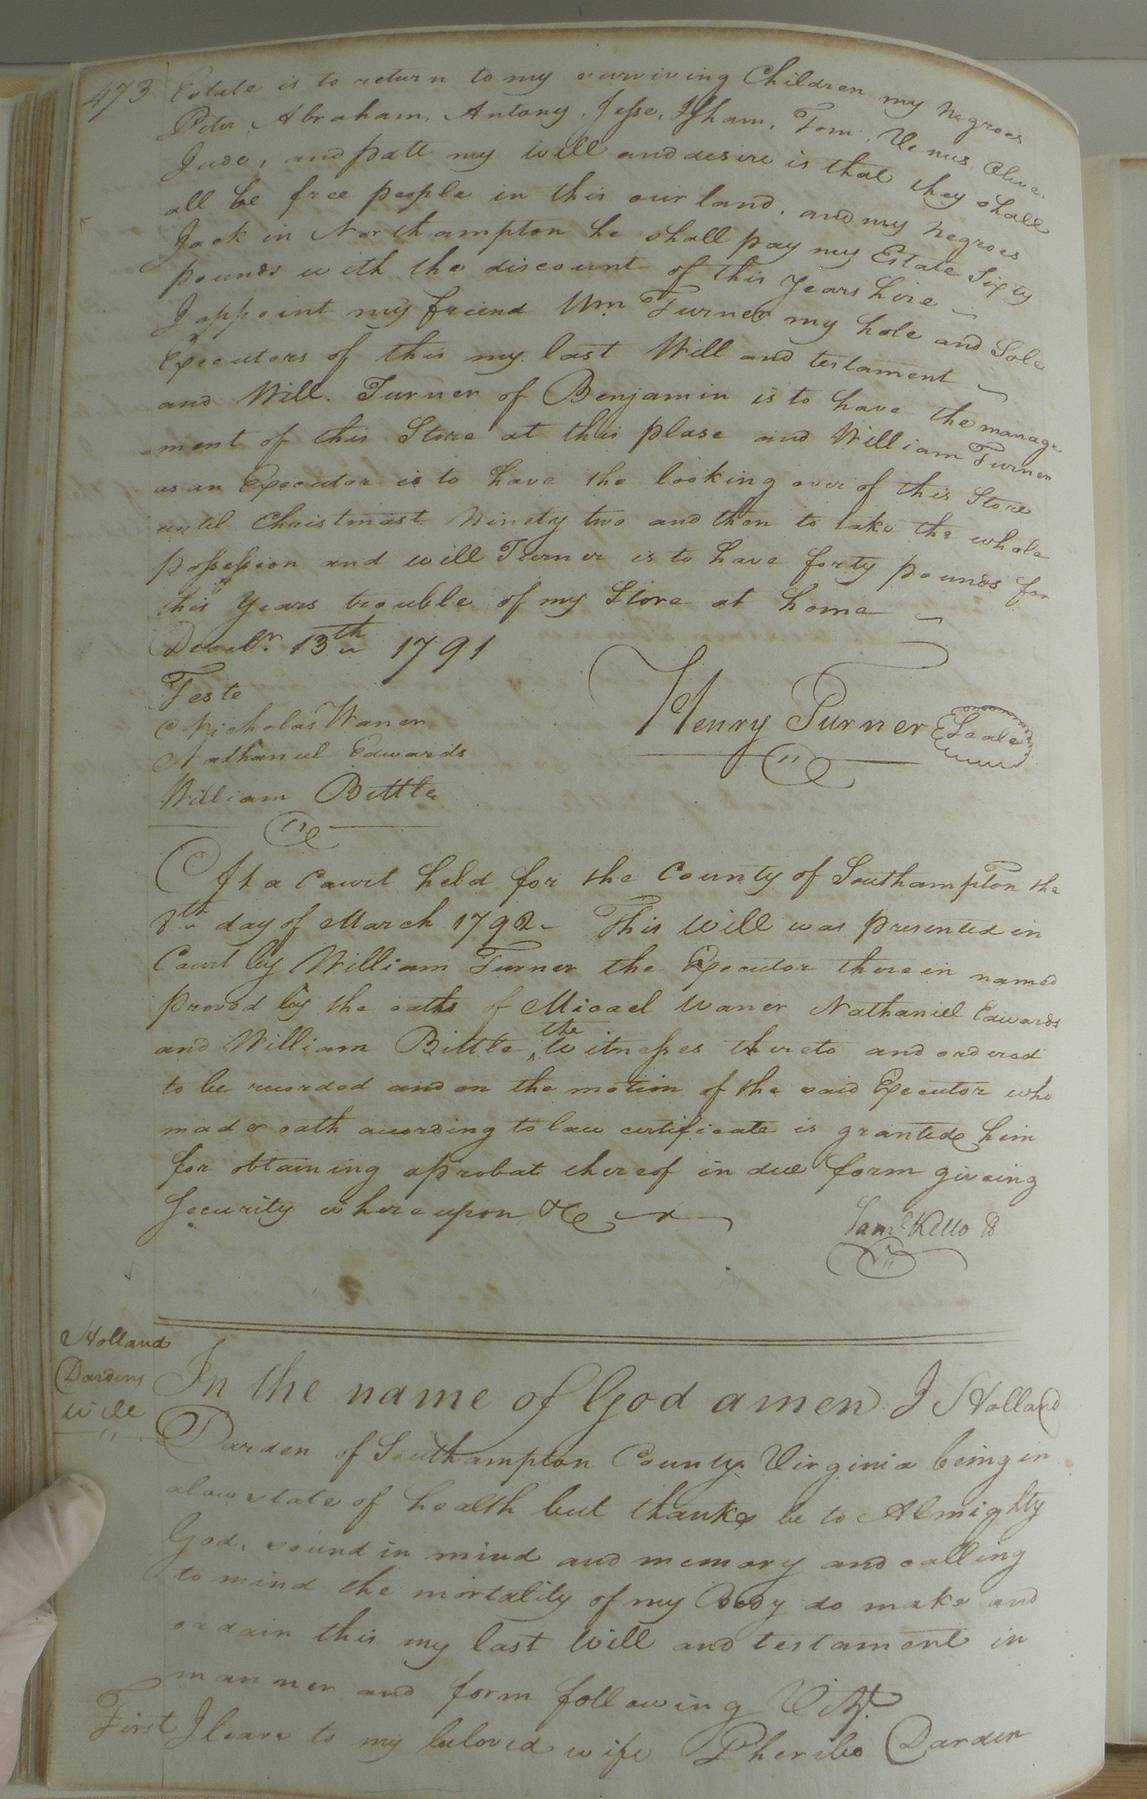 473
Estate is to return to my surviving Children my Negroes
Peter, Abraham, Antony, Jesse, Isham, Tom, Venus, Olive,
Jude, and patt my will and desire is that they shall
all be free people in this our land, and my Negroes
Jack in Northampton he shall pay my Estate Sixty
pounds with the discount of this years hire
I appoint my friend Wm Turner my hole and Sole
Executors of this my last Will and testament
and Will. Turner of Benjamin is to have the manage
ment of this Store at this plase and William Turner
as an Executor is to have the looking over of this Store
until Christmast Ninety two and then to take the whole
possession and will Turner is to have forty pounds for
this Years trouble of my Store at home
Decembr. 13th 1791
Teste
Nicholas Waner
Nathaniel Edwards
William Bittle
Henry Turner Seale
At a Court held for the County of Southampton the
8th day of March 1792 - This Will was presented in
Court by William Turner the Executor therein named
proved by the oaths of Micael Waner Nathaniel Edwards
and William Bittle the Witnesses thereto and ordered
to be recorded and on the motion of the said Executor who
made oath according to law certificate is granted him
for obtaining aprobat thereof in due form giveing
Security whereupon &c
Saml Kello
Holland
Dardens
Will
In the name of God amen I Holland
Darden of Southampton County Virginia being in
a low state of health but thanks be to Almighty
God, sound in mind and memory and calling
to mind the mortality of my Body do make and
ordain this my last Will and testament in
manner and form following Vizt.
First I leave to my beloved wife Pheribo Darden